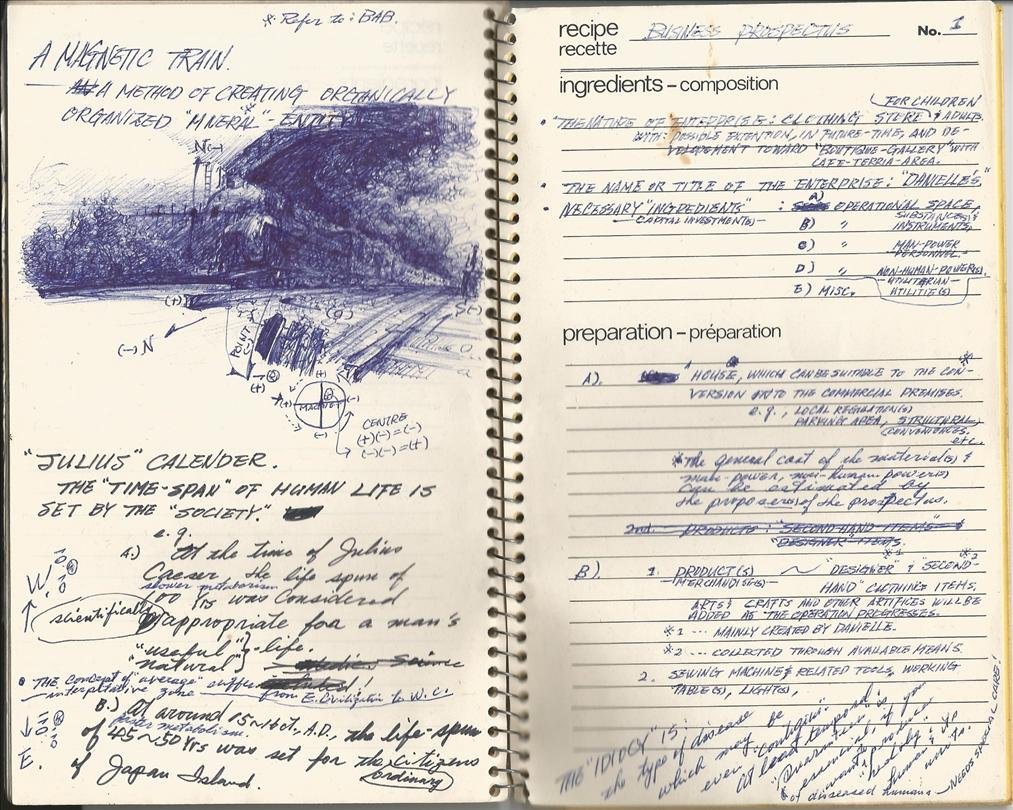 * Refer to: BAB.
A MAGNETIC TRAIN.
A METHOD OF CREATING ORGANICALLY
ORGANIZED "MINERAL"-ENTITY
N(-)
(+)
(-) N
POINT
(+)
(-)
MAGNET
(+)
(-)
(-)
CENTRE
(+)(-) = (-)
(-)(-) = (+)
"JULIUS" CALENDER.
THE "TIME-SPAN" OF HUMAN LIFE IS
SET BY THE "SOCIETY."
e.g.
A.) At the time of Julius
Caeser, the life span of
slower metabolism
100 Yrs was Considered
scientifically
appropriate for a man's
"useful"
"natural" } -life.
Medic. Science
• THE Concept of "average" suffer
interpretative zone from E. Civilization to W.C.
B.) At around 15~16ct. A.D., the life-span
faster metabolism.
of 45~50 Yrs was set for the Citizens
(ordinary)
of Japan Island.
W.
E.
recipe BUSINESS PROSPECTUS No. 1
recette
ingredients – composition
FOR CHILDREN
• THE NATURE OF ENTERPRISE: CLOTHING STORE & ADULTS.
WITH: POSSIBLE EXTENTION, IN FUTURE-TIME, AND DE-
VELOPEMENT TOWARD "BOUTIQUE-GALLERY" WITH
CAFE-TERRIA-AREA.
• THE NAME OR TITLE OF THE ENTERPRISE: "DANIELLE'S"
• NECESSARY "INGREDIENTS" : A) OPERATIONAL SPACE,
CAPITAL INVESTMENT(S)
B) " SUBSTANCE(S) & INSTRUMENTS,
C) " MAN-POWER
PERSONNEL.
D) " NON-HUMAN-POWER(S),
UTILITERIAN-
E) MISC. UTILITIE(S)
preparation – préparation
A). "HOUSE", WHICH CAN BE SUITABLE TO THE CON-
VERSION ONTO THE COMMERCIAL PREMISES.
e.g., LOCAL REGULATION(S)
PARKING AREA, STRUCTURAL
CONVENIENCES.
etc.
* The general cost of the material(s) &
man-power, non-human power(s)
can be estimated by
the proposer(s) of the prospectus.
2nd. PRODUCTS: "SECOND-HAND ITEMS" &
"DESIGNER" ITEMS.
B). 1. PRODUCT(S) ~ "DESIGNER" *1 & SECOND- *2
MERCHANDISE(S) HAND" CLOTHING ITEMS.
ARTS & CRAFTS AND OTHER ARTIFICES WILL BE
ADDED AS THE OPERATION PROGRESSES.
*1 --- MAINLY CREATED BY DANIELLE.
*2 --- COLLECTED THROUGH AVAILABLE MEANS.
2. SEWING MACHINE & RELATED TOOLS, WORKING
TABLE(S), LIGHT(S),
THE "IDIOCY" IS:
the type of disease
which may be
even "contageous"
At least temporal
"Quarantine" is
of essential, if you
want to provide
"healthy" &
diseased humans
NEEDS SPECIAL CARE!